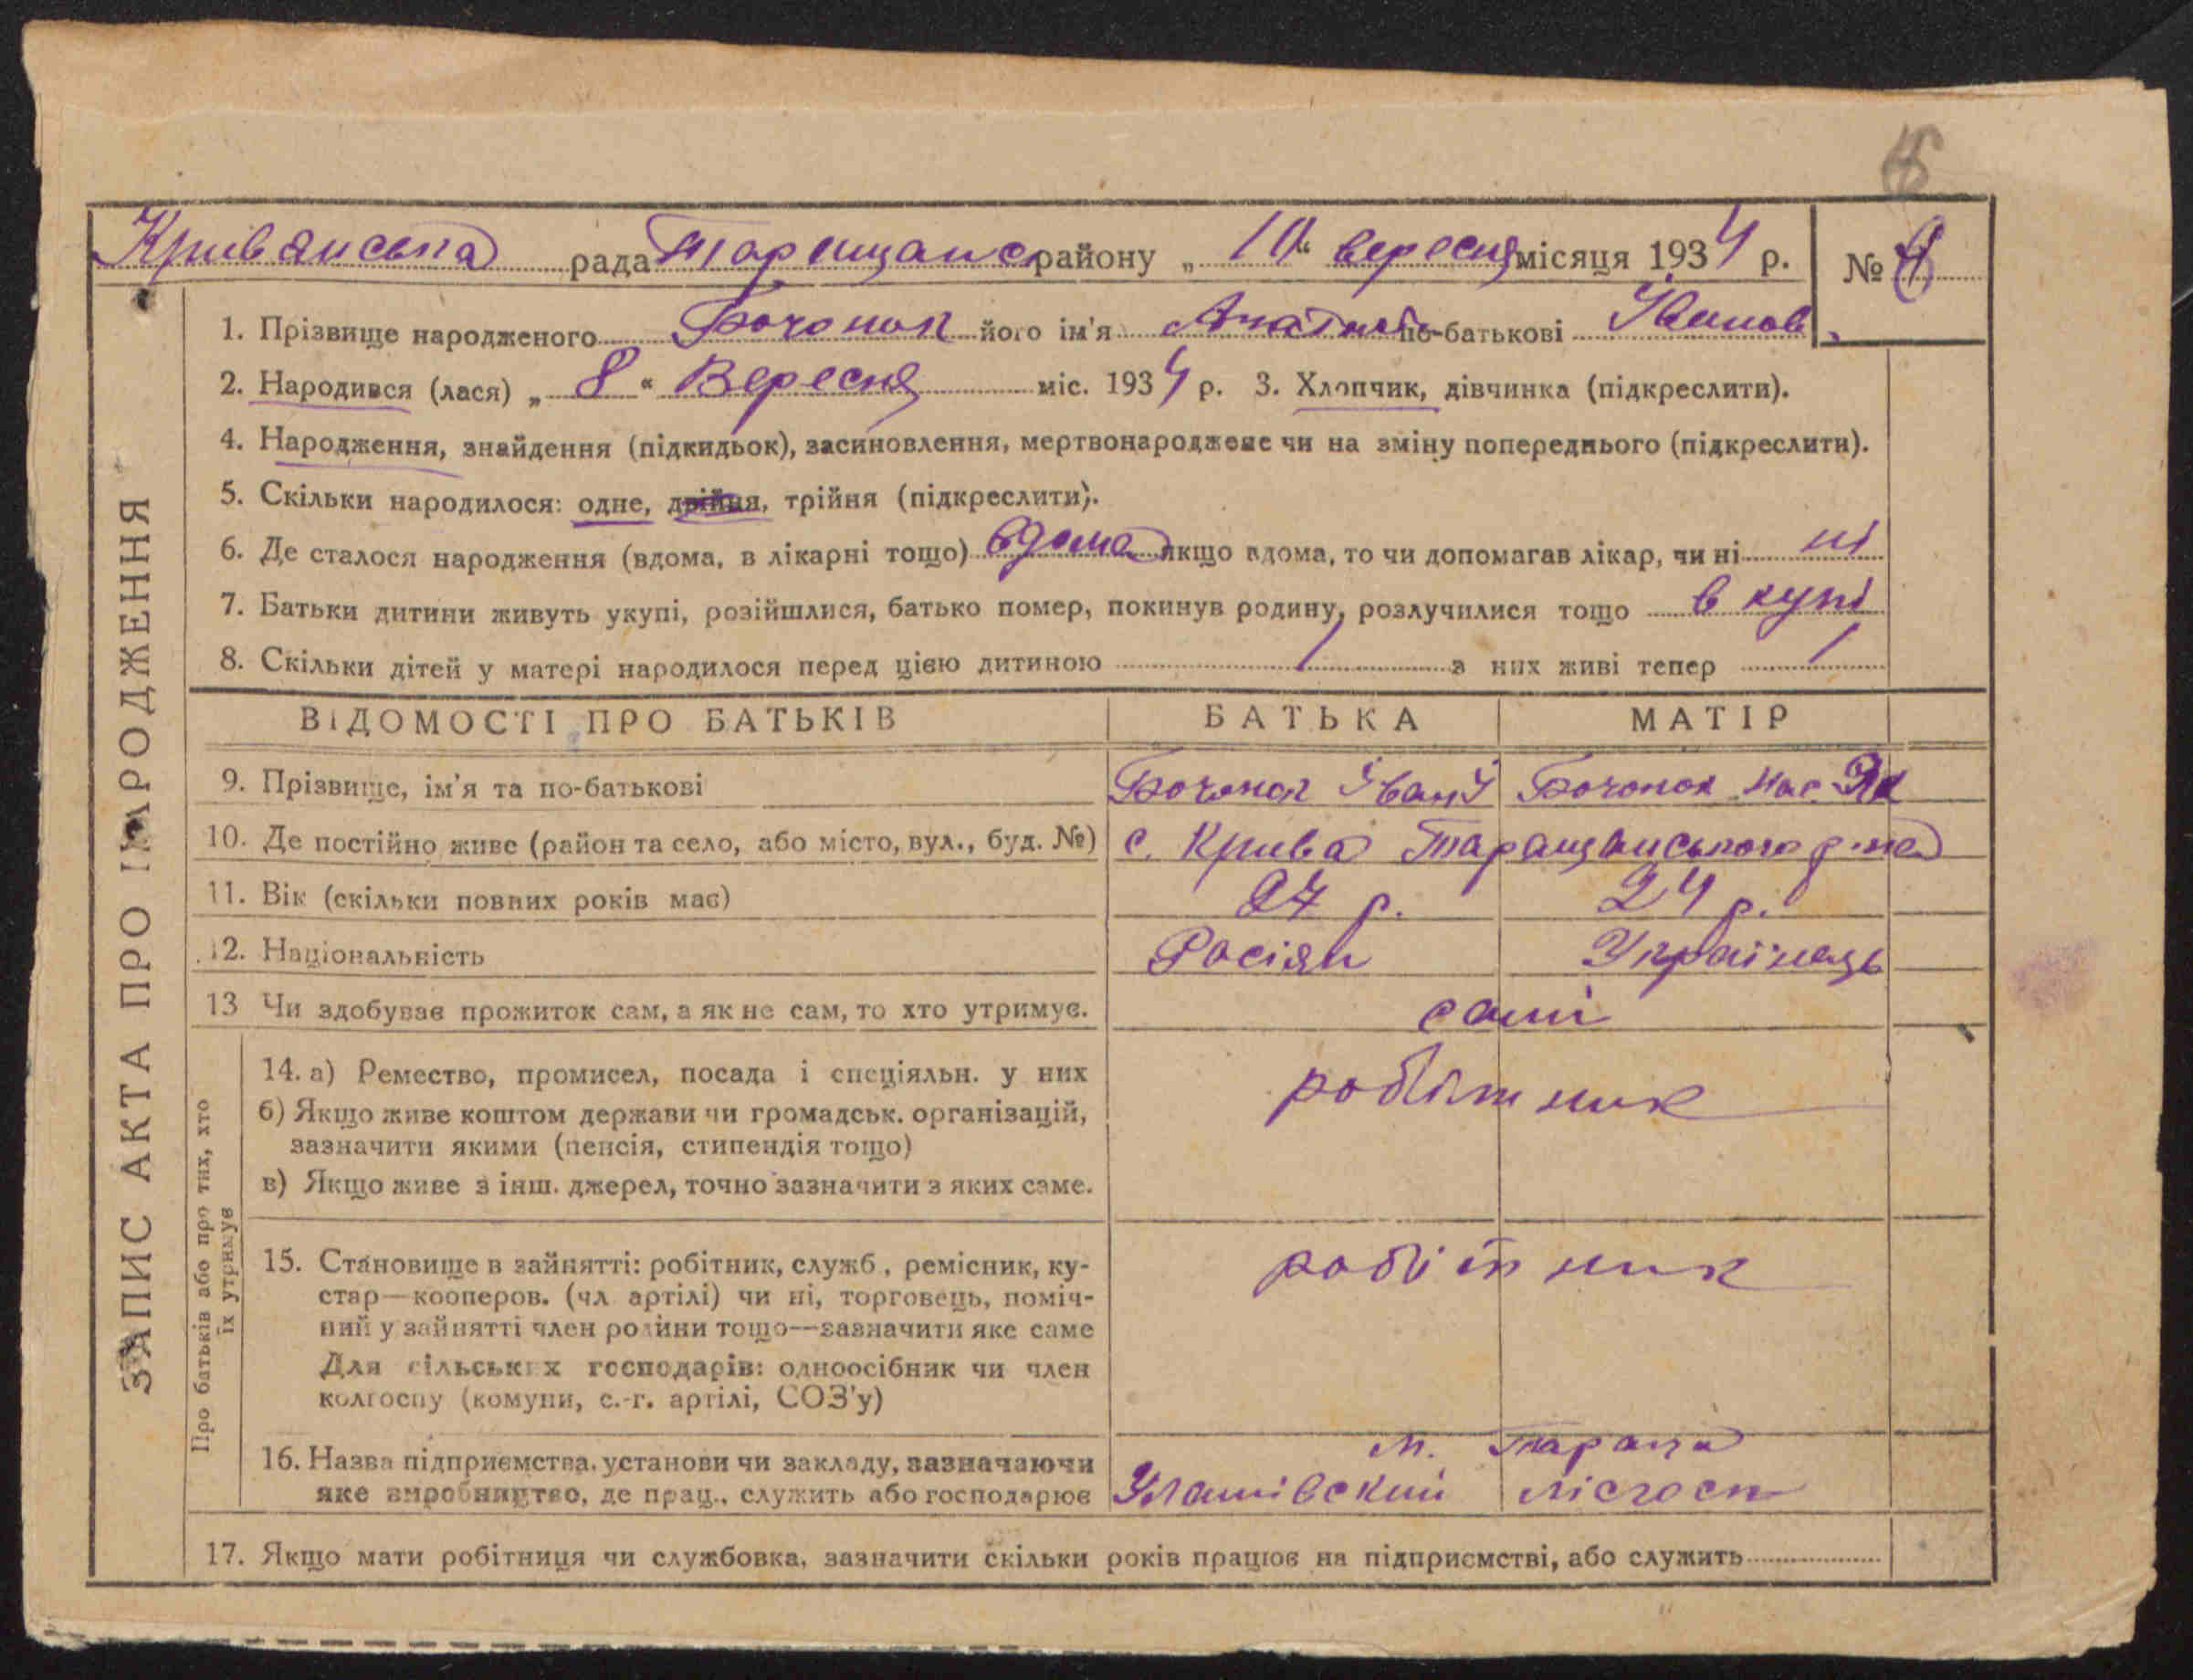 Кривянська рада Таращанс району „ 10 " вересня місяця 1934 р. №
1. Прізвище народженого Бочонок його ім'я Анатолі по-батькові Іванов.
2. Народився (лася) „ 8 " Вересня міс. 1934 р. 3. Хлопчик, дівчинка (підкреслити).
4. Народження, знайдення (підкидьок), засиновлення, мертвонароджене чи на зміну попереднього (підкреслити).
5. Скільки народилося: одне, двійня, трійня (підкреслити).
6. Де сталося народження (вдома, в лікарні тощо) вдома якщо вдома, то чи допомагав лікар, чи ні ні
7. Батьки дитини живуть укупі, розійшлися, батько помер, покинув родину, розлучилися тощо в купі
8. Скільки дітей у матері народилося перед цією дитиною 1 з них живі тепер 1
ЗАПИС АКТА ПРО НАРОДЖЕННЯ
ВІДОМОСТІ ПРО БАТЬКІВ БАТЬКА МАТІР
9. Прізвище, ім'я та по-батькові Бочонок Іван І Бочонок Нас. Як
10. Де постійно живе (район та село, або місто, вул., буд. №) с. Крива Таращанського р-на
11. Вік (скільки повних років має) 27 р. 24 р.
12. Національність Росіян Українець
13 Чи здобуває прожиток сам, а як не сам, то хто утримує. самі
Про батьків або про тих, хто
їх утримує
14. а) Ремество, промисел, посада і спеціяльн. у них робітник
б) Якщо живе коштом держави чи громадськ. організацій,
зазначити якими (пенсія, стипендія тощо)
в) Якщо живе з інш. джерел, точно зазначити з яких саме.
15. Становище в зайнятті: робітник, служб., ремісник, ку- робітник
стар—кооперов. (чл артілі) чи ні, торговець, поміч-
ний у зайнятті член родини тощо—зазначити яке саме
Для сільських господарів: одноосібник чи член
колгоспу (комуни, с.-г. артілі, СОЗ'у)
16. Назва підприємства, установи чи закладу, зазначаючи м. Тараща
яке виробництво, де прац., служить або господарює Улашівский лісгосп
17. Якщо мати робітниця чи службовка, зазначити скільки років працює на підприємстві, або служить